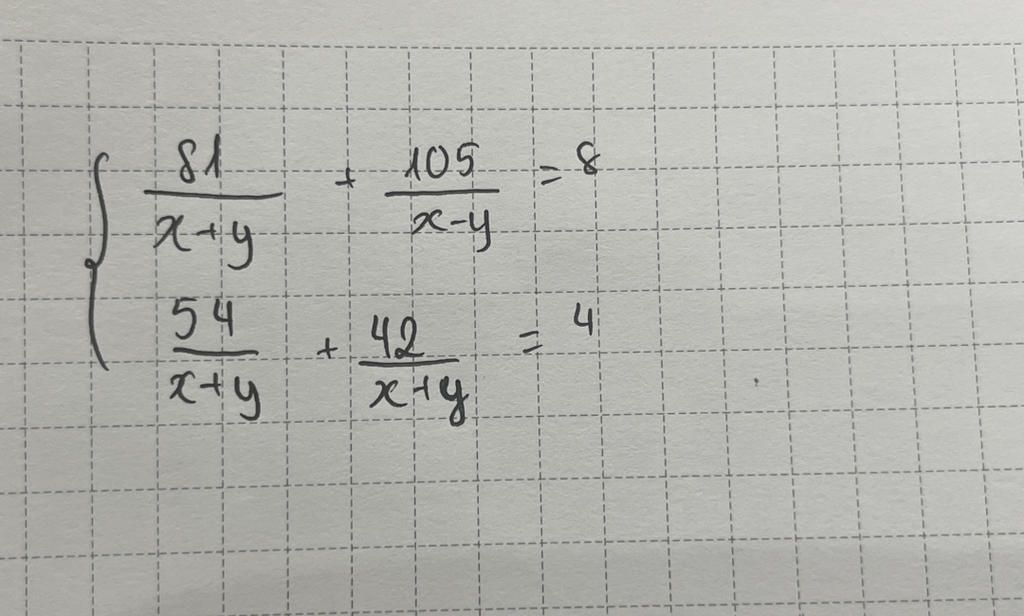 { 81/(x+y) + 105/(x-y) = 8
54/(x+y) + 42/(x+y) = 4